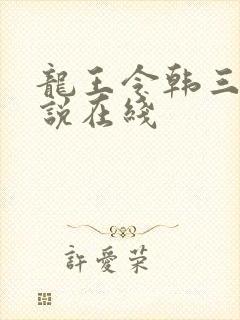 龍王令韩三
說在綫
許愛荣